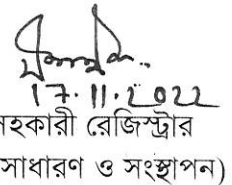 17.11.2022
সহকারী রেজিস্ট্রার
সাধারণ ও সংস্থাপন)